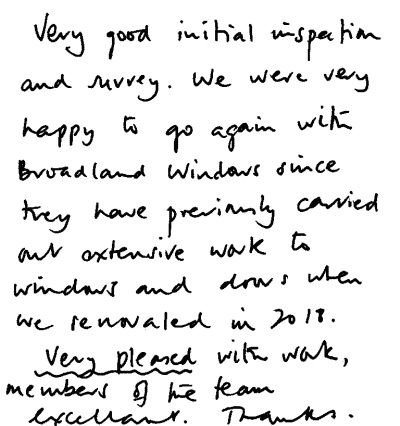 Very good initial inspection
and survey. We were very
happy to go again with
Broadland Windows since
they have previously carried
out extensive work to
windows and doors when
we renovated in 2018.
Very pleased with work,
members of the team
excellent. Thanks.